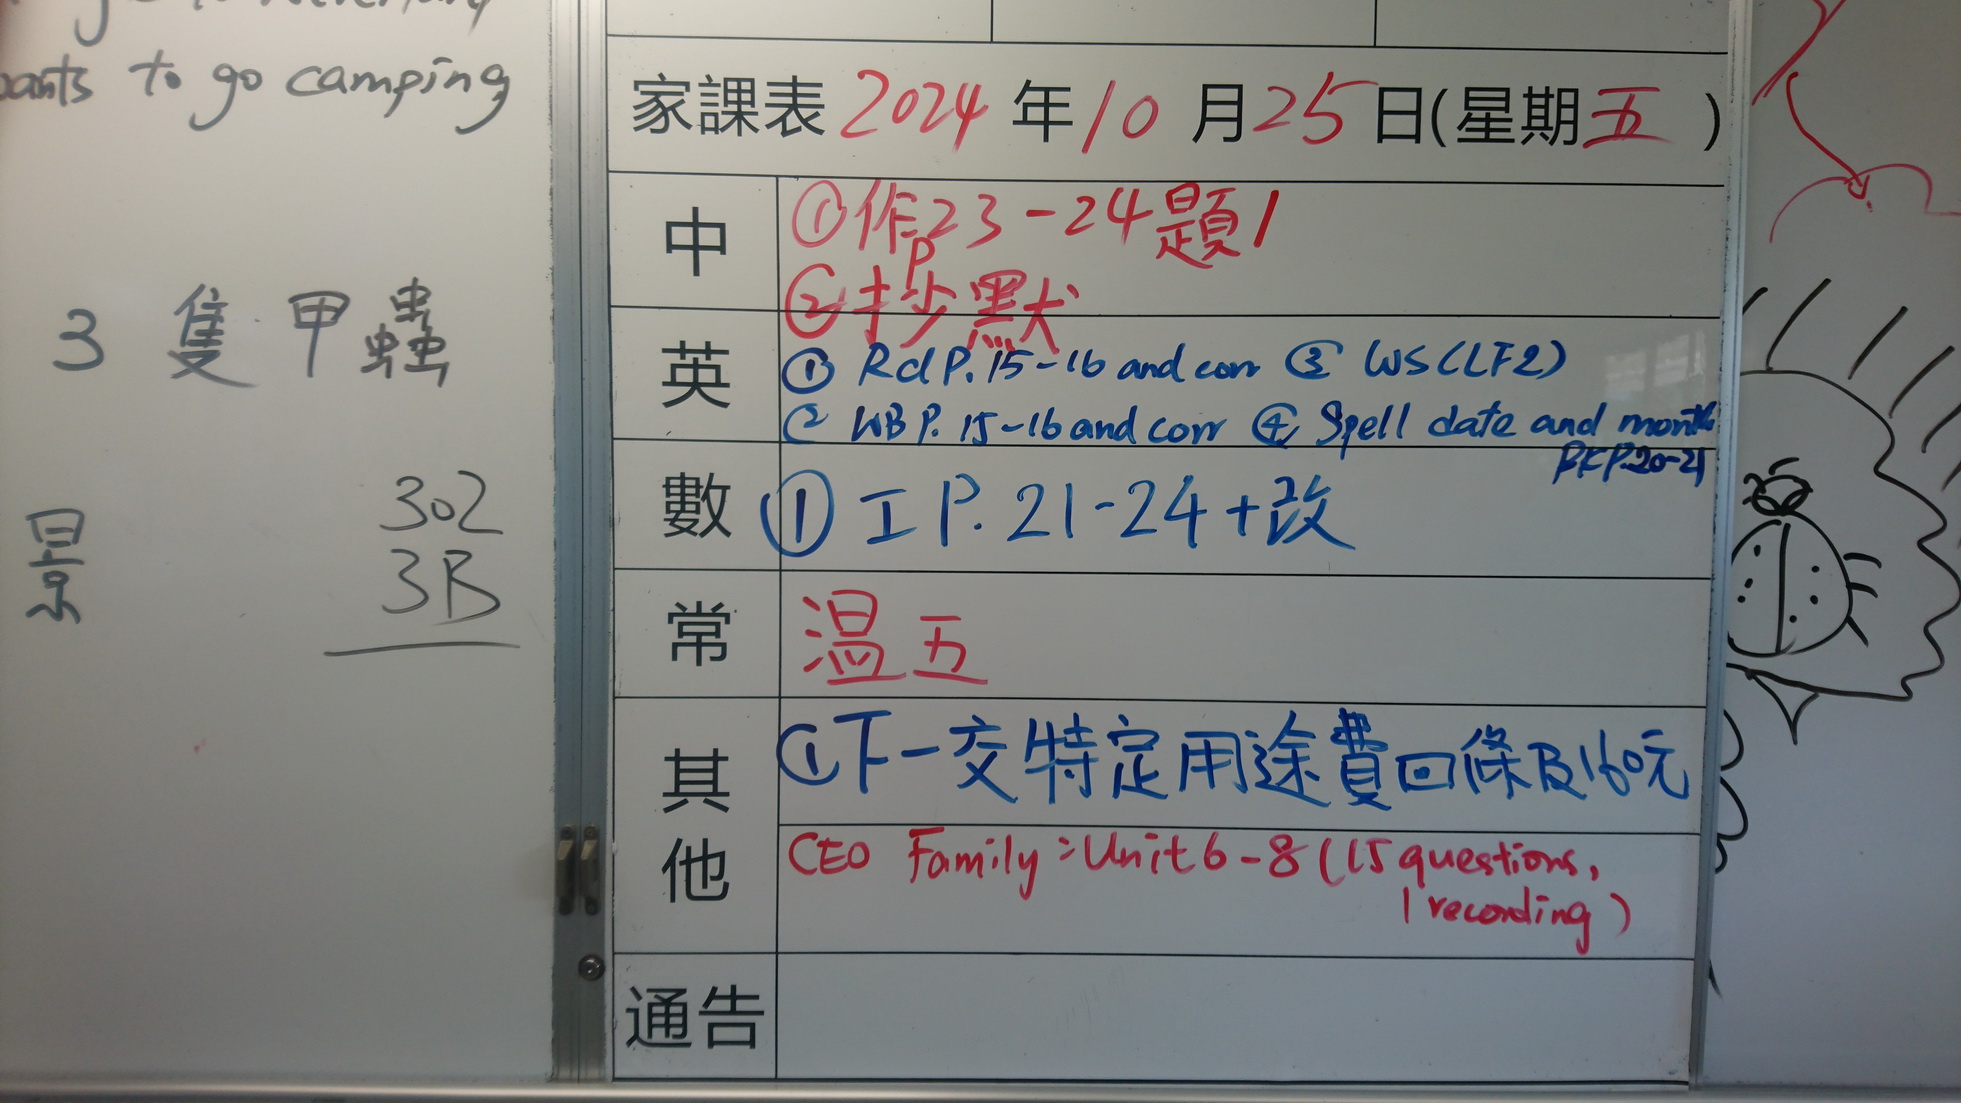 to go camping
3 隻 甲蟲
景
302
3B
家課表 2024 年 10 月 25 日(星期 五 )
中
①作P.23-24題1
②抄默
英
① Rd P.15-16 and corr ③ WS (LF2)
② WB P.15-16 and corr ④ Spell date and month
P.20-21
數
① 工 P.21-24+改
常
温五
其他
①下一交特定用途費回條及160元
CEO Family : Unit 6-8 (15 questions,
1 recording)
通告